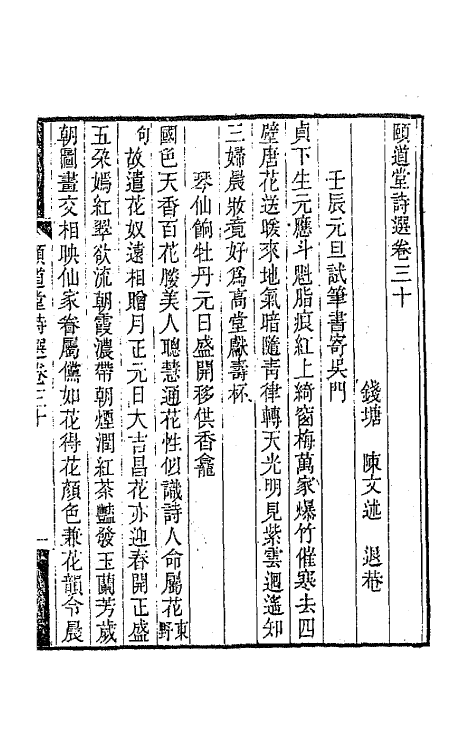 頤道堂詩選卷三十
錢塘 陳文述 退菴
壬辰元旦試筆書寄吳門
貞下生元應斗魁脂痕紅上綺窗梅萬家爆竹催寒去四
壁唐花送暖來地氣暗隨青律轉天光明見紫雲迴遙知
三婦晨妝竟好爲高堂獻壽杯
琴仙餉牡丹元日盛開移供香龕
國色天香百花勝美人聰慧通花性似識詩人命屬花東野
句故遣花奴遠相贈月正元日大吉昌花亦迎春開正盛
五朶嫣紅翠欲流朝霞濃帶朝煙潤紅茶豔發玉蘭芳歲
朝圖畫交相映仙家眷屬儷如花得花顏色兼花韻令晨
頤道堂詩選卷三十
一